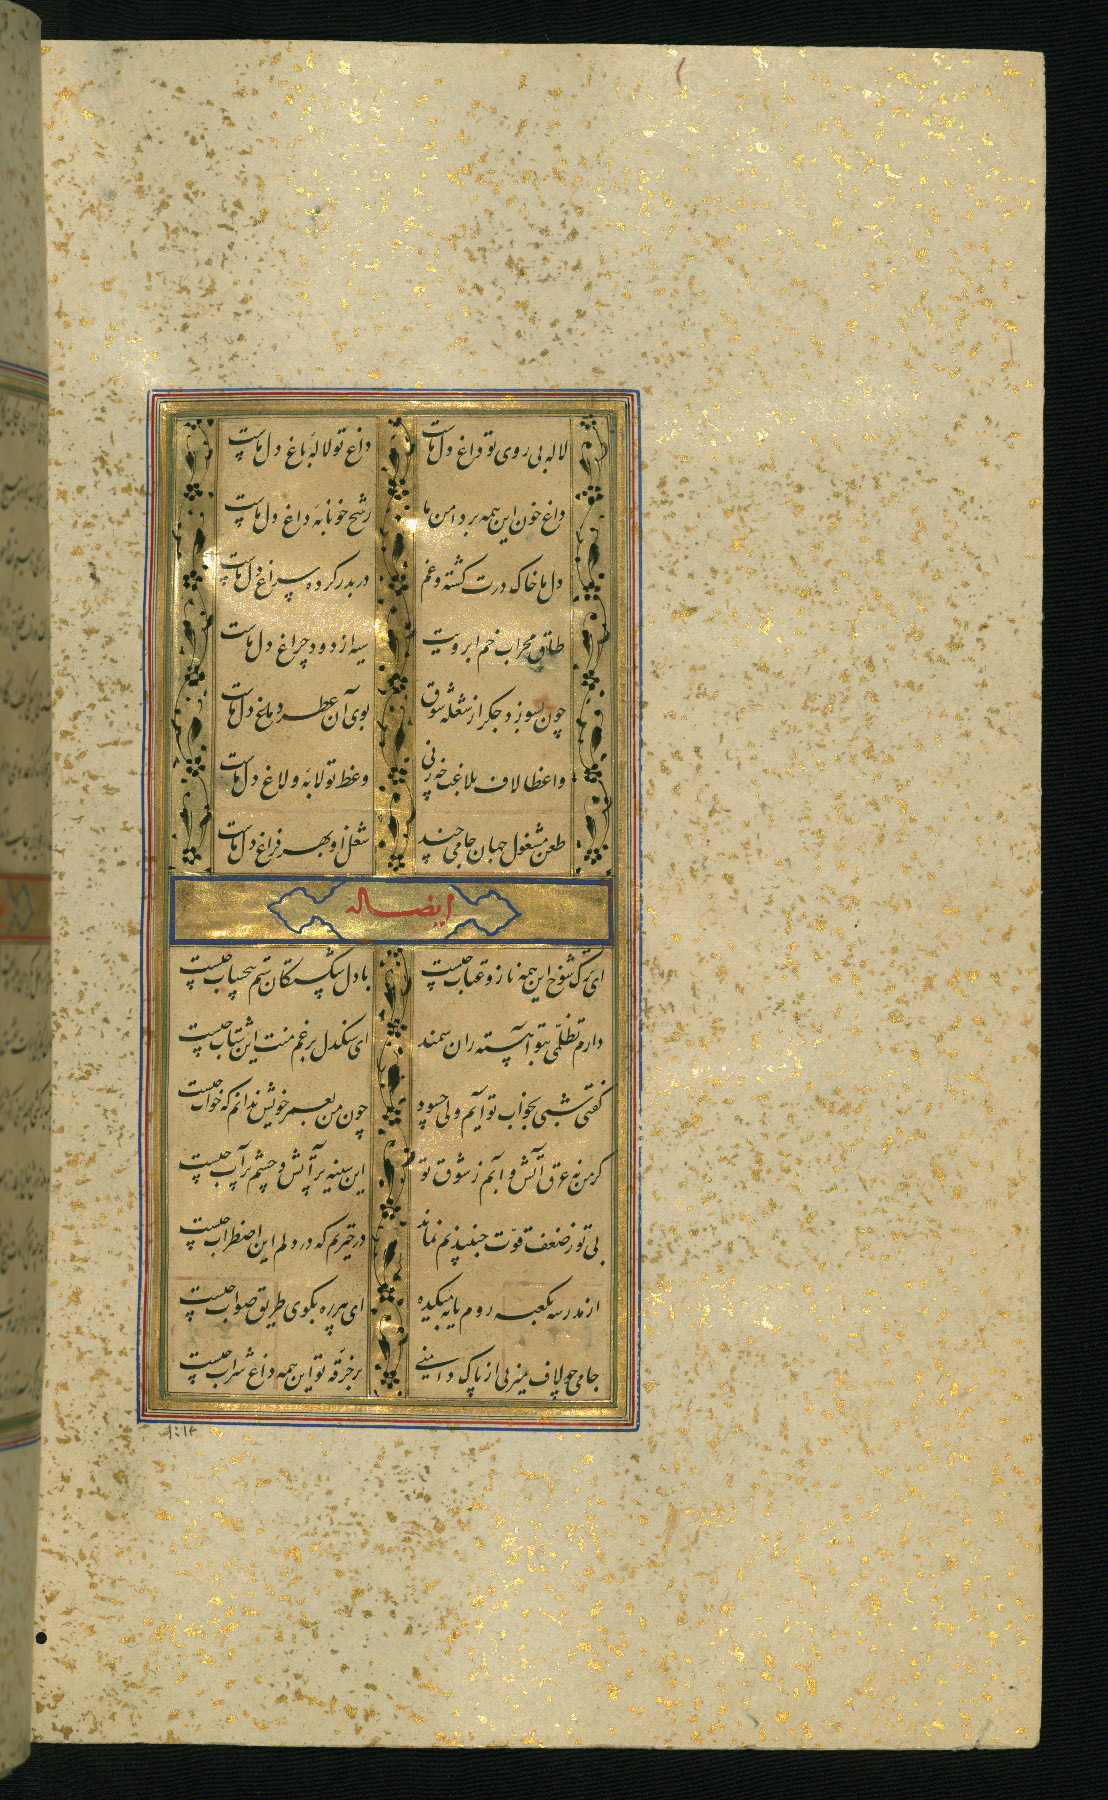 لاله بی روی تو داغ دل ماست داغ تو لالهٔ باغ دل ماست
داغ خون این همه بر دامن ما رشح خونابهٔ داغ دل ماست
دل ما خاک درت گشته و غم دربدر کرده سراغ دل ماست
طاق محراب خم ابرویت سیه از دود چراغ دل ماست
چون بسوزد جگر از شعله شوق بوی آن عطر دماغ دل ماست
واعظا لاف بلاغت چه زنی وعظ تو لابه و لاغ دل ماست
طعن مشغول جهان جامی چند شغل او بهر فراغ دل ماست
ایضاله
ای ترک شوخ این همه ناز و عتاب چیست با دل شکستگان ستم بیحساب چیست
دارم تظلمی بتو آهسته ران سمند ای سنگدل برغم منت این شتاب چیست
گفتی شبی بخواب تو آیم ولی چسود چون من بعمر خویش ندانم که خواب چیست
گر من نه غرق آتش و آبم ز شوق تو این سینه پر آتش و چشم پر آب چیست
بی تو ز ضعف قوت جنبیدنم نماند در حیرتم که در دلم این اضطراب چیست
از مدرسه بکعبه روم یا بمیکده ای پیر ره بگوی طریق صواب چیست
جامی چو لاف میزنی از پاک دامنی بر خرقه تو این همه داغ شراب چیست